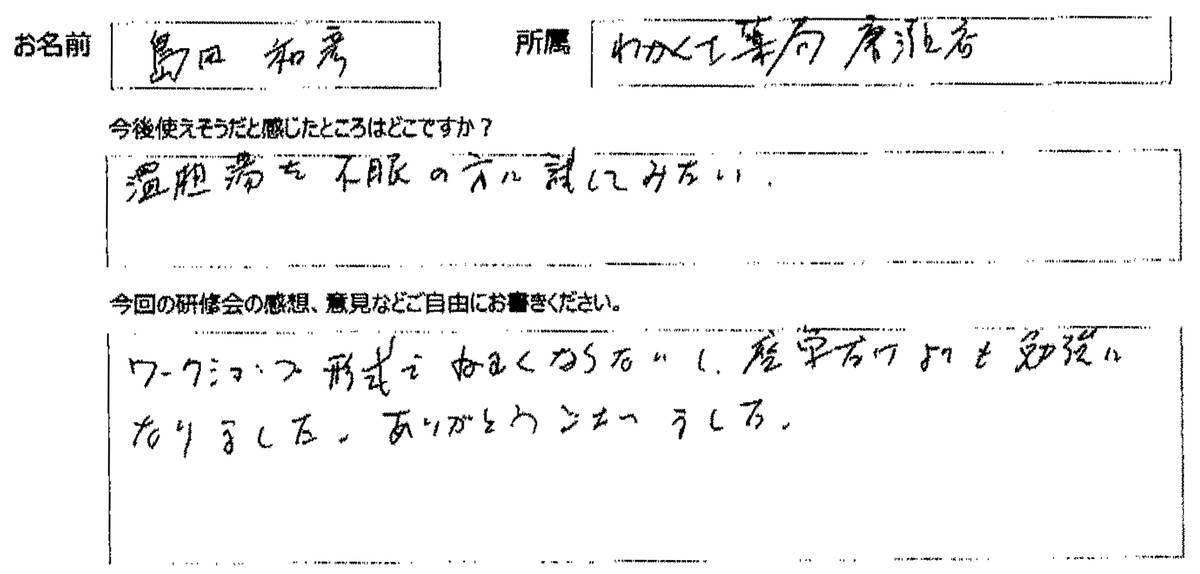 お名前 島田 和彦 所属 わかくさ薬局
今後使えそうだと感じたところはどこですか？
温胆湯を不眠の方に試してみたい.
今回の研修会の感想、意見などご自由にお書きください。
ワークショップ形式でねむくならないし、座学だけよりも勉強に
なりました。ありがとうございました。